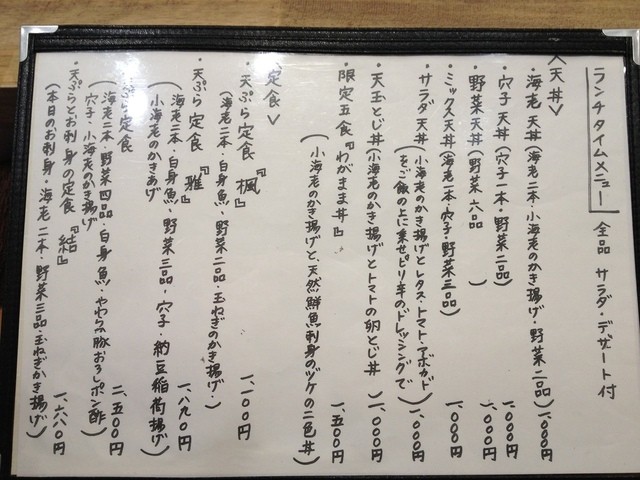 ランチタイムメニュー 全品 サラダ・デザート付
<天丼>
・海老天丼(海老二本・小海老のかき揚げ・野菜二品)一、〇〇〇円
・穴子天丼(穴子一本・野菜二品)一、〇〇〇円
・野菜天丼(野菜六品)一、〇〇〇円
・ミックス天丼(海老一本・穴子・野菜三品)一、〇〇〇円
・サラダ天丼(小海老のかき揚げとレタス・トマト・アボカド
をご飯の上に乗せピリ辛のドレッシングで)一、〇〇〇円
・天玉とじ丼(小海老のかき揚げとトマトの卵とじ丼)一、〇〇〇円
・限定五食『わがまま丼』一、五〇〇円
(小海老のかき揚げと、天然鮮魚刺身のヅケの二色丼)
定食>
・天ぷら定食『楓』一、一〇〇円
(海老二本・白身魚・野菜二品・玉ねぎのかき揚げ・)
・天ぷら定食『雅』一、八九〇円
(海老二本・白身魚・野菜三品・穴子・納豆稲荷揚げ
小海老のかきあげ)
定食 二、五〇〇円
(海老二本・野菜四品・白身魚・やわらか豚おろしポン酢
穴子・小海老のかき揚げ)
・天ぷらとお刺身の定食『結』一、六八〇円
(本日のお刺身・海老二本・野菜三品・玉ねぎかき揚げ)